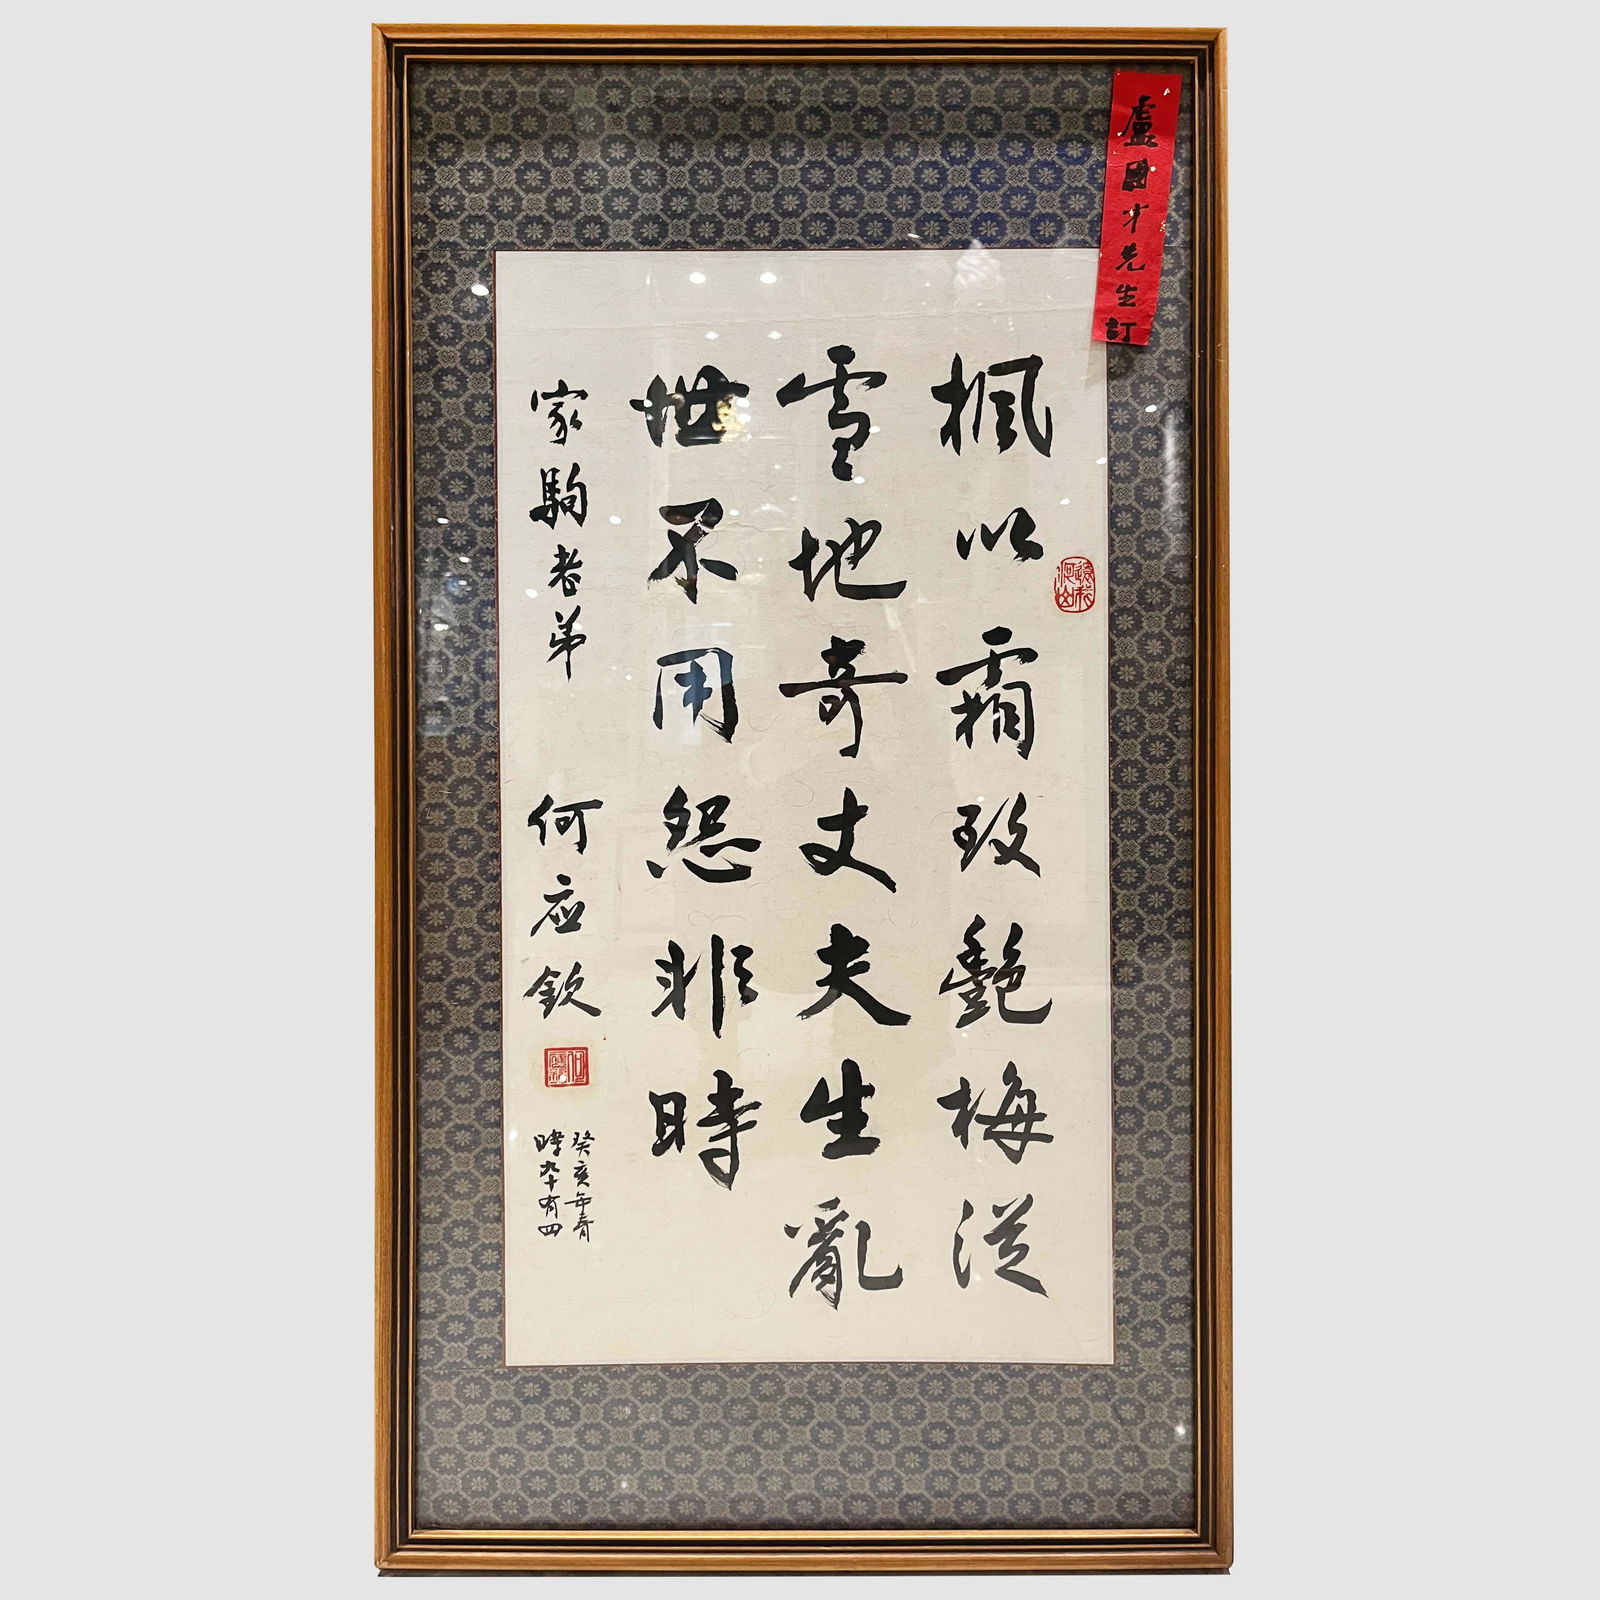 盧國才先生訂
楓以霜致艷梅從
雪地奇丈夫生亂
世不用怨非時
家駒老弟
何应欽
癸亥年春
時九十有四